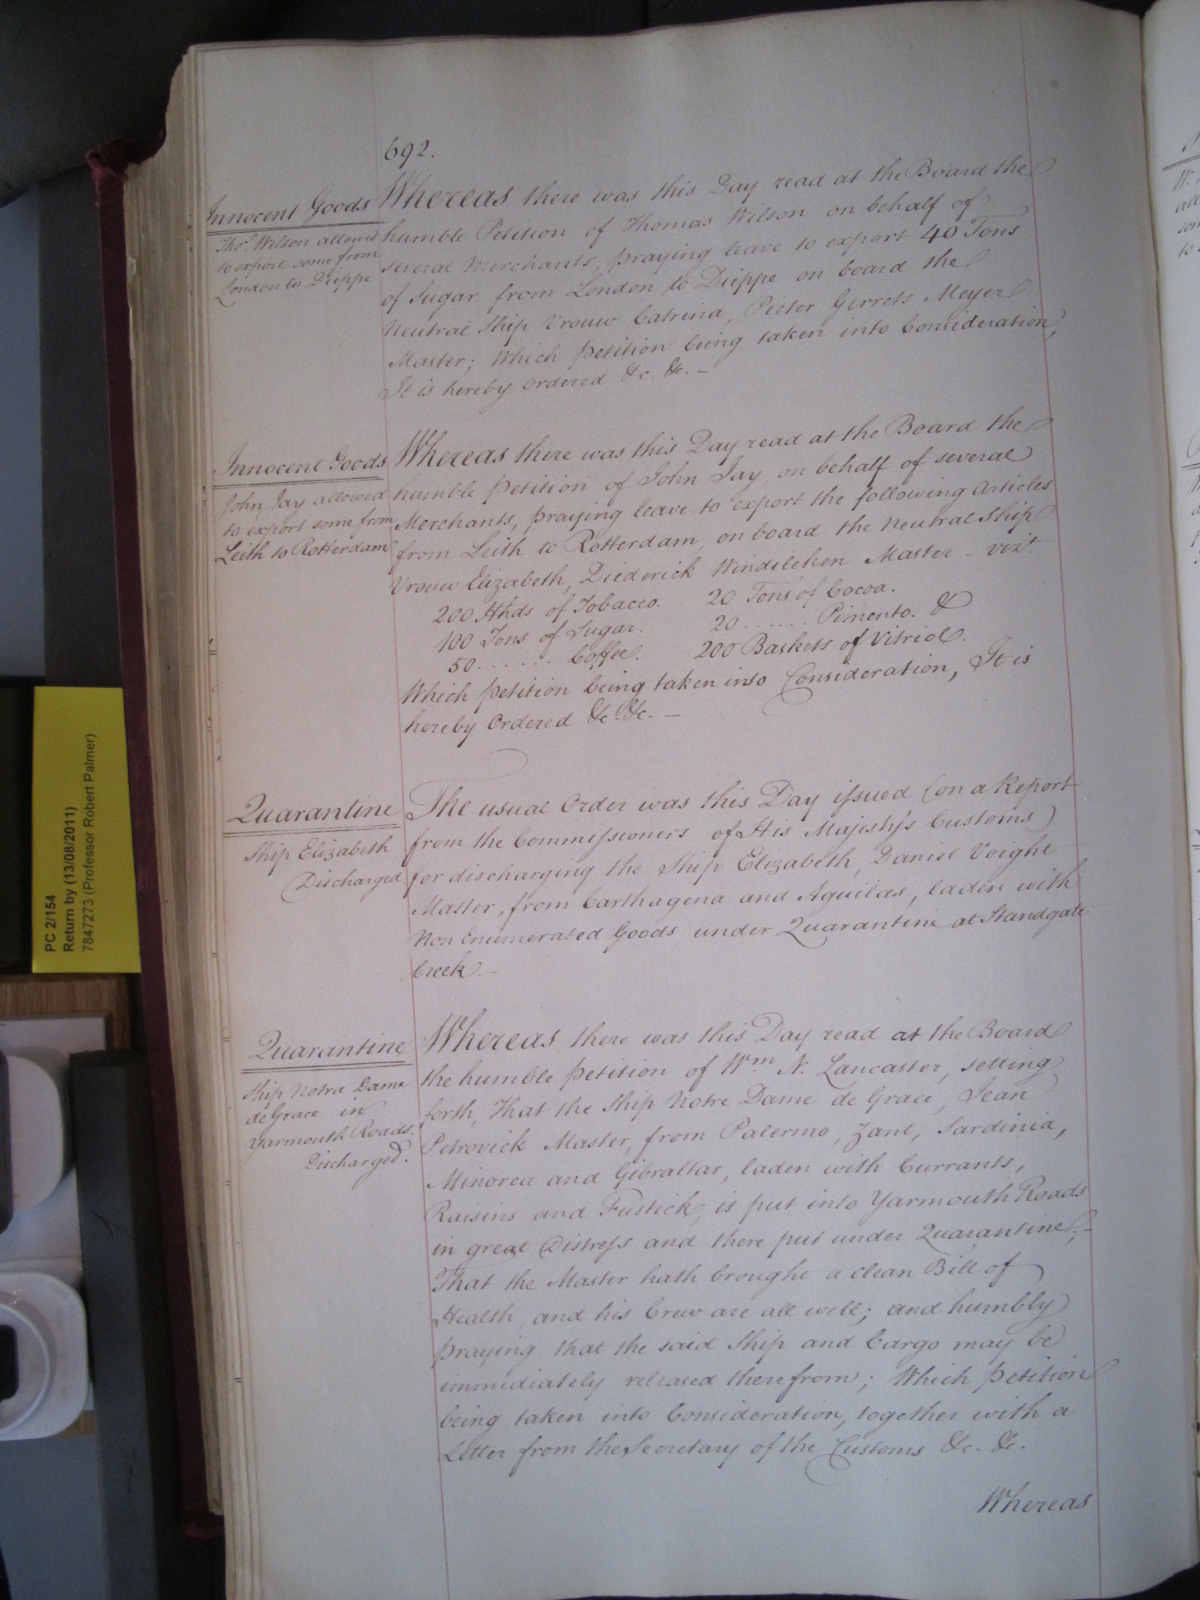 692.
Innocent Goods
Thos. Wilson allowed
to export some from
London to Dieppe
Whereas there was this Day read at the Board the
humble Petition of Thomas Wilson on behalf of
several Merchants, praying leave to export 40 Tons
of Sugar from London to Dieppe on board the
Neutral Ship Vrouw Catrina, Pieter Gerrets Meyer
Master; Which Petition being taken into Consideration,
It is hereby Ordered &c. &c. –
Innocent Goods
John Jay allowed
to export some from
Leith to Rotterdam
Whereas there was this Day read at the Board the
humble Petition of John Jay, on behalf of several
Merchants, praying leave to export the following Articles
from Leith to Rotterdam, on board the Neutral Ship
Vrouw Elizabeth, Diederick Windileken Master – vizt.
200 Hhds of Tobacco. 20 Tons of Cocoa.
100 Tons of Sugar. 20 ...... Pimento. &
50 ...... Coffee. 200 Baskets of Vitriol.
Which Petition being taken into Consideration, It is
hereby Ordered &c &c. –
Quarantine
Ship Elizabeth
Discharged
The usual Order was this Day issued (on a Report
from the Commissioners of His Majesty's Customs)
for discharging the Ship Elizabeth, Daniel Voight
Master, from Carthagena and Aguilas, laden with
Non Enumerated Goods under Quarantine at Standgate
Creek. –
Quarantine
Ship Notra Dame
de Grace in
Yarmouth Roads.
Discharged.
Whereas there was this Day read at the Board
the humble Petition of Wm. N. Lancaster, setting
forth, That the Ship Notre Dame de Grace, Jean
Petrovick Master, from Palermo, Zant, Sardinia,
Minorca and Gibraltar, laden with Currants,
Raisins and Fustick, is put into Yarmouth Roads
in great Distress and there put under Quarantine; –
That the Master hath brought a clean Bill of
Health, and his Crew are all well; and humbly
praying that the said Ship and Cargo may be
immediately released therefrom; Which Petition
being taken into Consideration, together with a
Letter from the Secretary of the Customs &c. &c.
Whereas
PC 2/154
Return by (13/08/2011)
7847273 (Professor Robert Palmer)